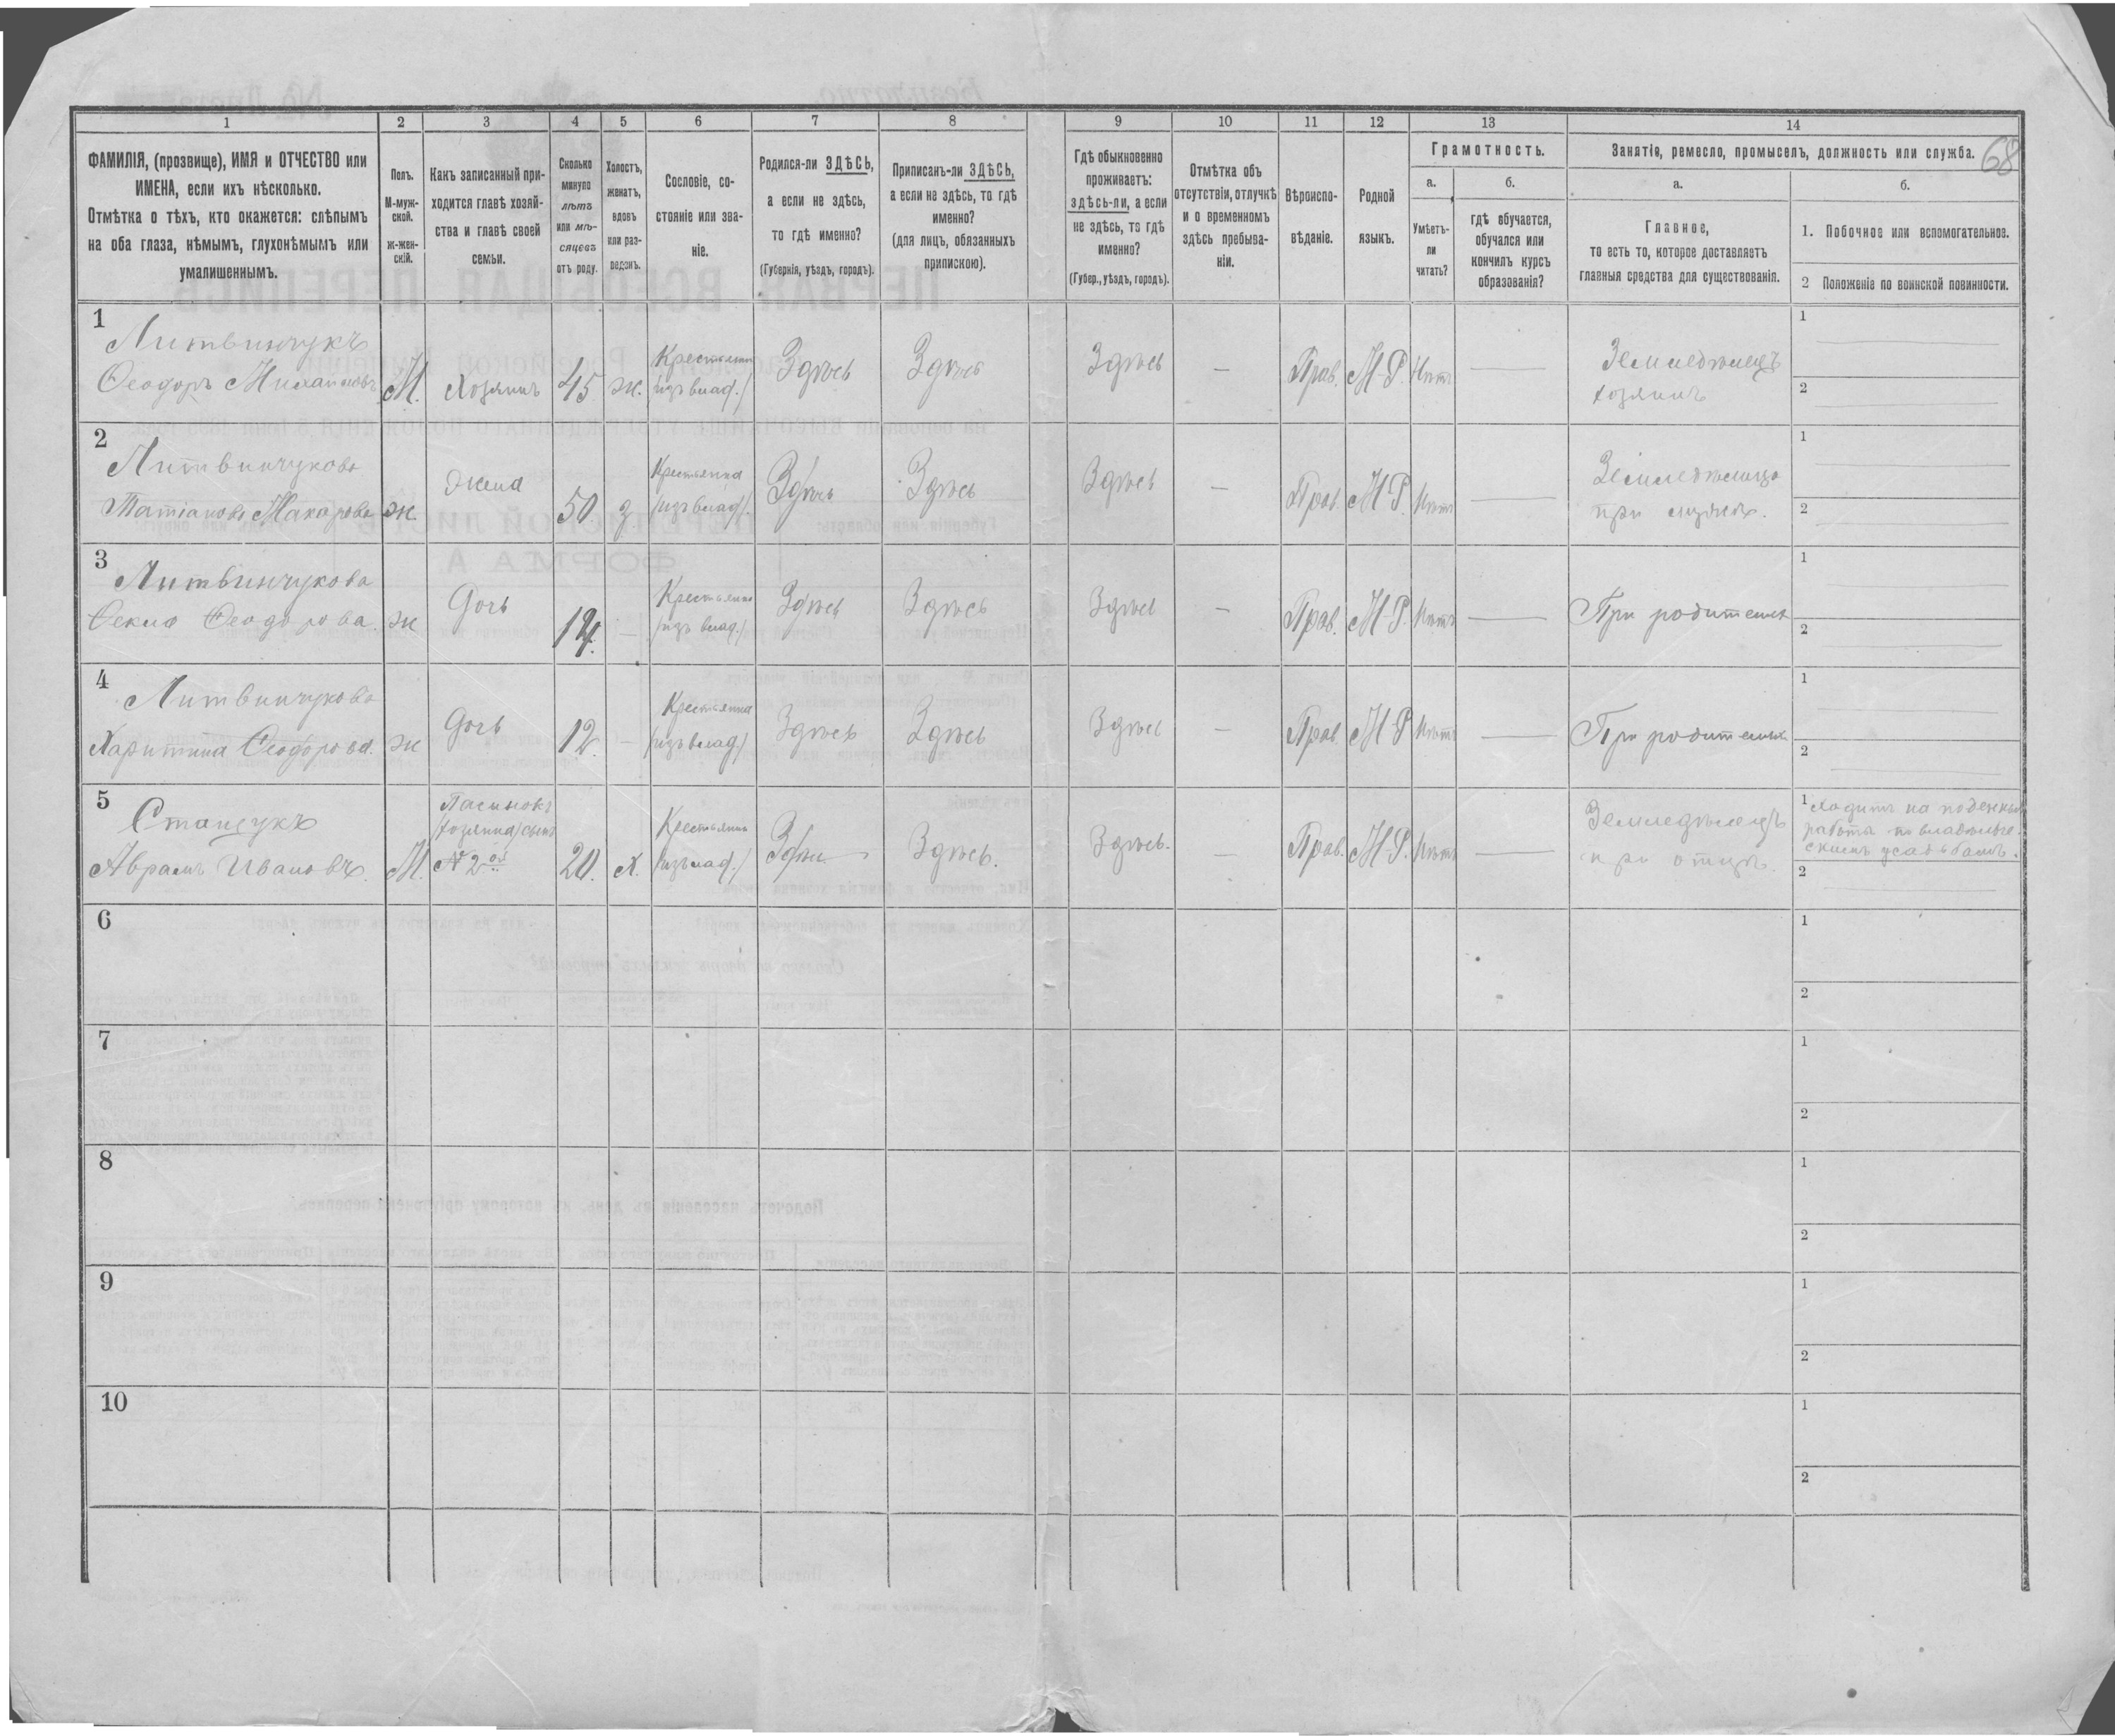 68
1 2 3 4 5 6 7 8 9 10 11 12 13 14
ФАМИЛІЯ, (прозвище), ИМЯ и ОТЧЕСТВО или
ИМЕНА, если ихъ нѣсколько.
Отмѣтка о тѣхъ, кто окажется: слѣпымъ
на оба глаза, нѣмымъ, глухонѣмымъ или
умалишеннымъ.
Полъ.
М-муж-
ской.
Ж-жен-
скій.
Какъ записанный при-
ходится главѣ хозяй-
ства и главѣ своей
семьи.
Сколько
минуло
лѣтъ
или мѣ-
сяцевъ
отъ роду.
Холостъ,
женатъ,
вдовъ
или раз-
веденъ.
Сословіе, со-
стояніе или зва-
ніе.
Родился-ли ЗДѢСЬ,
а если не здѣсь,
то гдѣ именно?
(Губернія, уѣздъ, городъ).
Приписанъ-ли ЗДѢСЬ,
а если не здѣсь, то гдѣ
именно?
(для лицъ, обязанныхъ
припискою).
Гдѣ обыкновенно
проживаетъ:
здѣсь-ли, а если
не здѣсь, то гдѣ
именно?
(Губер., уѣздъ, городъ).
Отмѣтка объ
отсутствіи, отлучкѣ
и о временномъ
здѣсь пребыва-
ніи.
Вѣроиспо-
вѣданіе.
Родной
языкъ.
Грамотность.
а.
Умѣетъ-
ли
читать?
б.
гдѣ обучается,
обучался или
кончилъ курсъ
образованія?
Занятіе, ремесло, промыселъ, должность или служба.
а.
Главное,
то есть то, которое доставляетъ
главныя средства для существованія.
б.
1. Побочное или вспомогательное.
2 Положеніе по воинской повинности.
1
Литвинчукъ
Ѳеодоръ Михайловъ М. Хозяинъ 45 ж. Крестьянин /изъ влад./ Здѣсь Здѣсь Здѣсь — Прав. М-Р. Нѣтъ — Земледѣлецъ хозяинъ 1 2
2
Литвинчукова
Татіанова Макарова ж. Жена 50 з Крестьянка /изъ влад./ Здѣсь Здѣсь Здѣсь — Прав. М-Р. Нѣтъ — Земледѣлица при мужѣ. 1 2
3
Литвинчукова
Ѳекла Ѳеодорова ж Дочь 14. — Крестьянка /изъ влад./ Здѣсь Здѣсь Здѣсь — Прав. М-Р. Нѣтъ — При родителях 1 2
4
Литвинчукова
Харитина Ѳеодорова. ж Дочь 12 — Крестьянка /изъ влад./ Здѣсь Здѣсь Здѣсь — Прав. М-Р Нѣтъ — При родителях 1 2
5
Стащукъ
Аврамъ Ивановъ. М. Пасынокъ /хозяина/ сынъ № 2ой 20. х. Крестьянин /изъ влад./ Здѣсь Здѣсь. Здѣсь. — Прав. М-Р. Нѣтъ — Земледѣлецъ при отцѣ. 1 Ходитъ на поденныя
работы по владѣльче-
скимъ усадьбамъ. 2
6 1 2
7 1 2
8 1 2
9 1 2
10 1 2